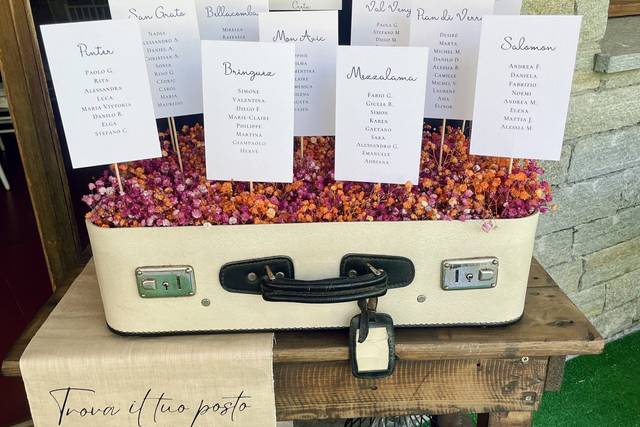 San Grato
Nadia
Alessandro A.
Daniel A.
Christian A.
Rino G.
Cedric
Carol
Maria
Maurizio
Bellacomba
Mirello
Mon Avic
Val Veny
Paola G.
Stefano M.
Diego M.
Pian di Verra
Desiré
Marta
Michel M.
Danilo D.
Alessia B.
Camille
Michel V.
Laurent
Asia
Elinor
Pinter
Paolo G.
Rita
Alessandra
Luca
Maria Vittoria
Danilo B.
Elga
Stefano C.
Bringuez
Simone
Valentina
Diego F.
Marie-Claire
Philippe
Martina
Giampaolo
Hervé
Mezzalama
Fabio G.
Giulia B.
Simon
Karen
Gaetano
Sara
Alessandro G.
Emanuele
Adriana
Salomon
Andrea F.
Daniela
Fabrizio
Noemi
Andrea M.
Elena
Mattia J.
Alessia M.
Trova il tuo posto